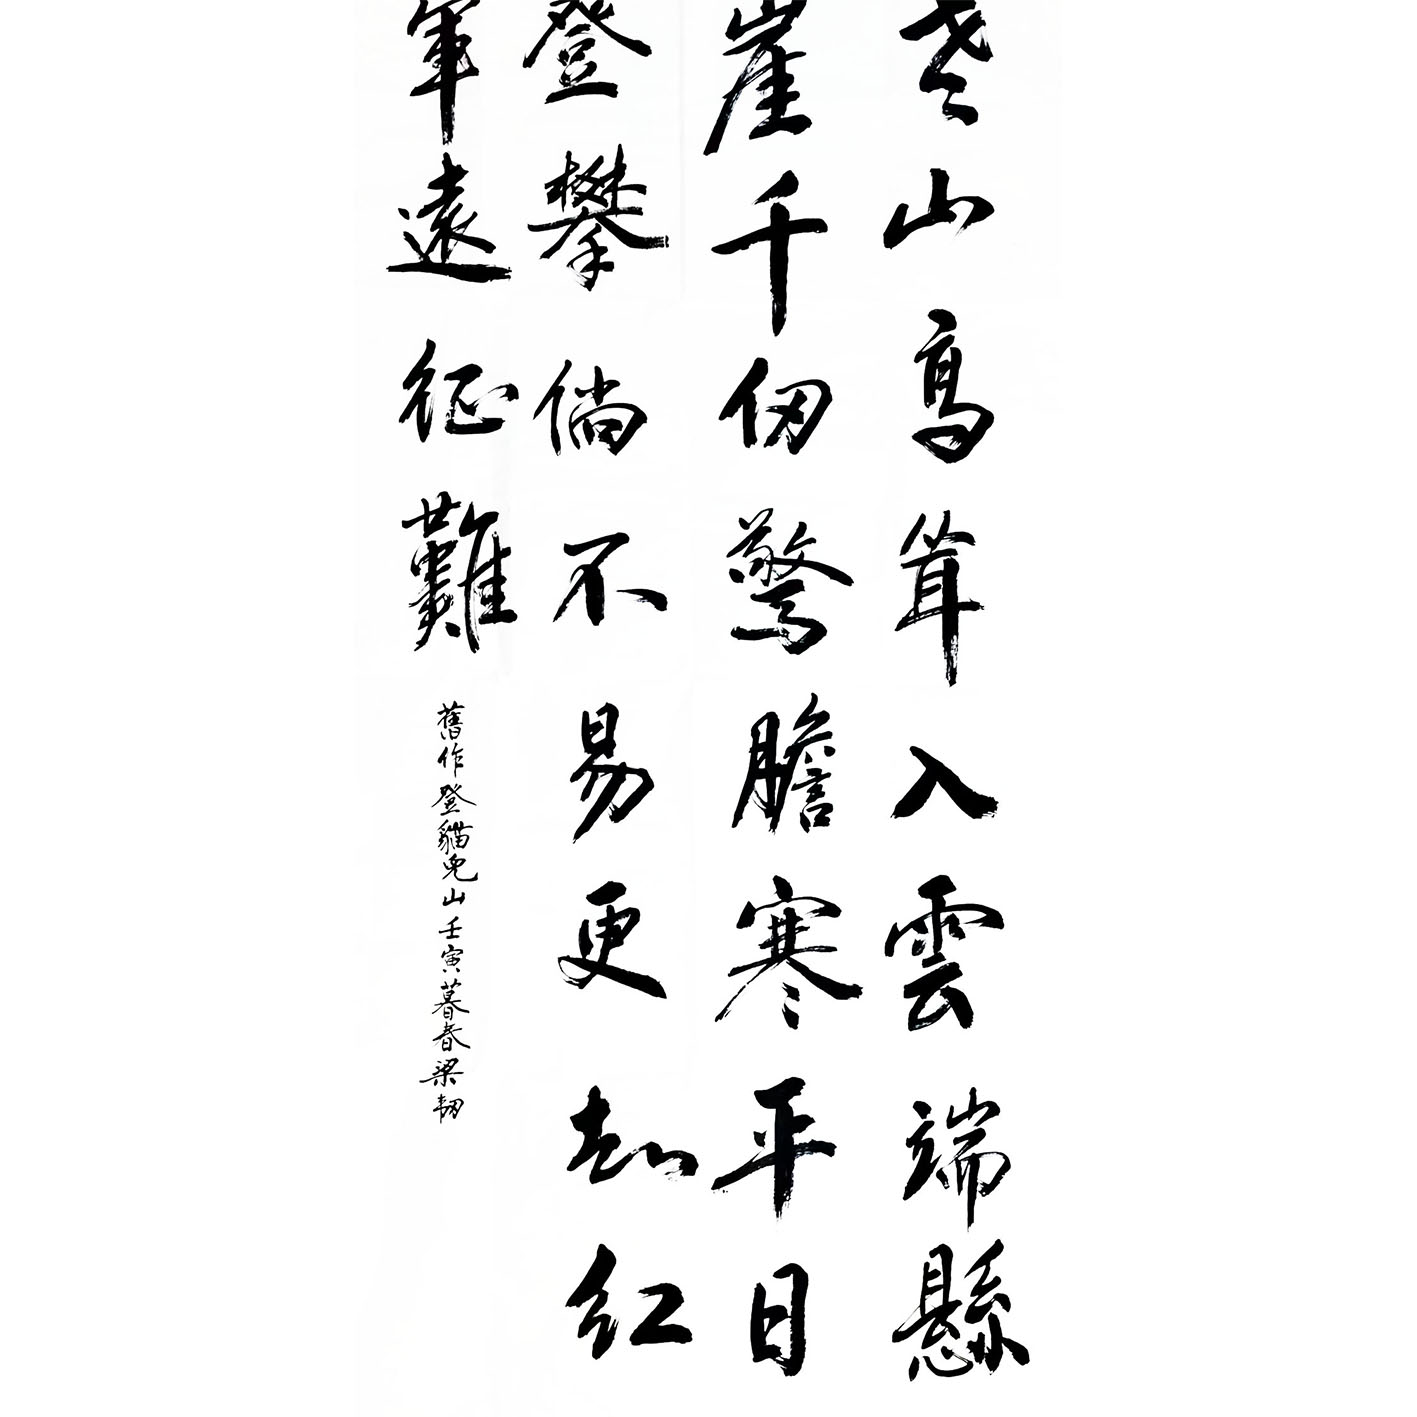 老山高耸入雲端懸
崖千仞驚膽寒平日
登攀倘不易更知紅
軍遠征難
舊作登貓兒山壬寅暮春梁韌